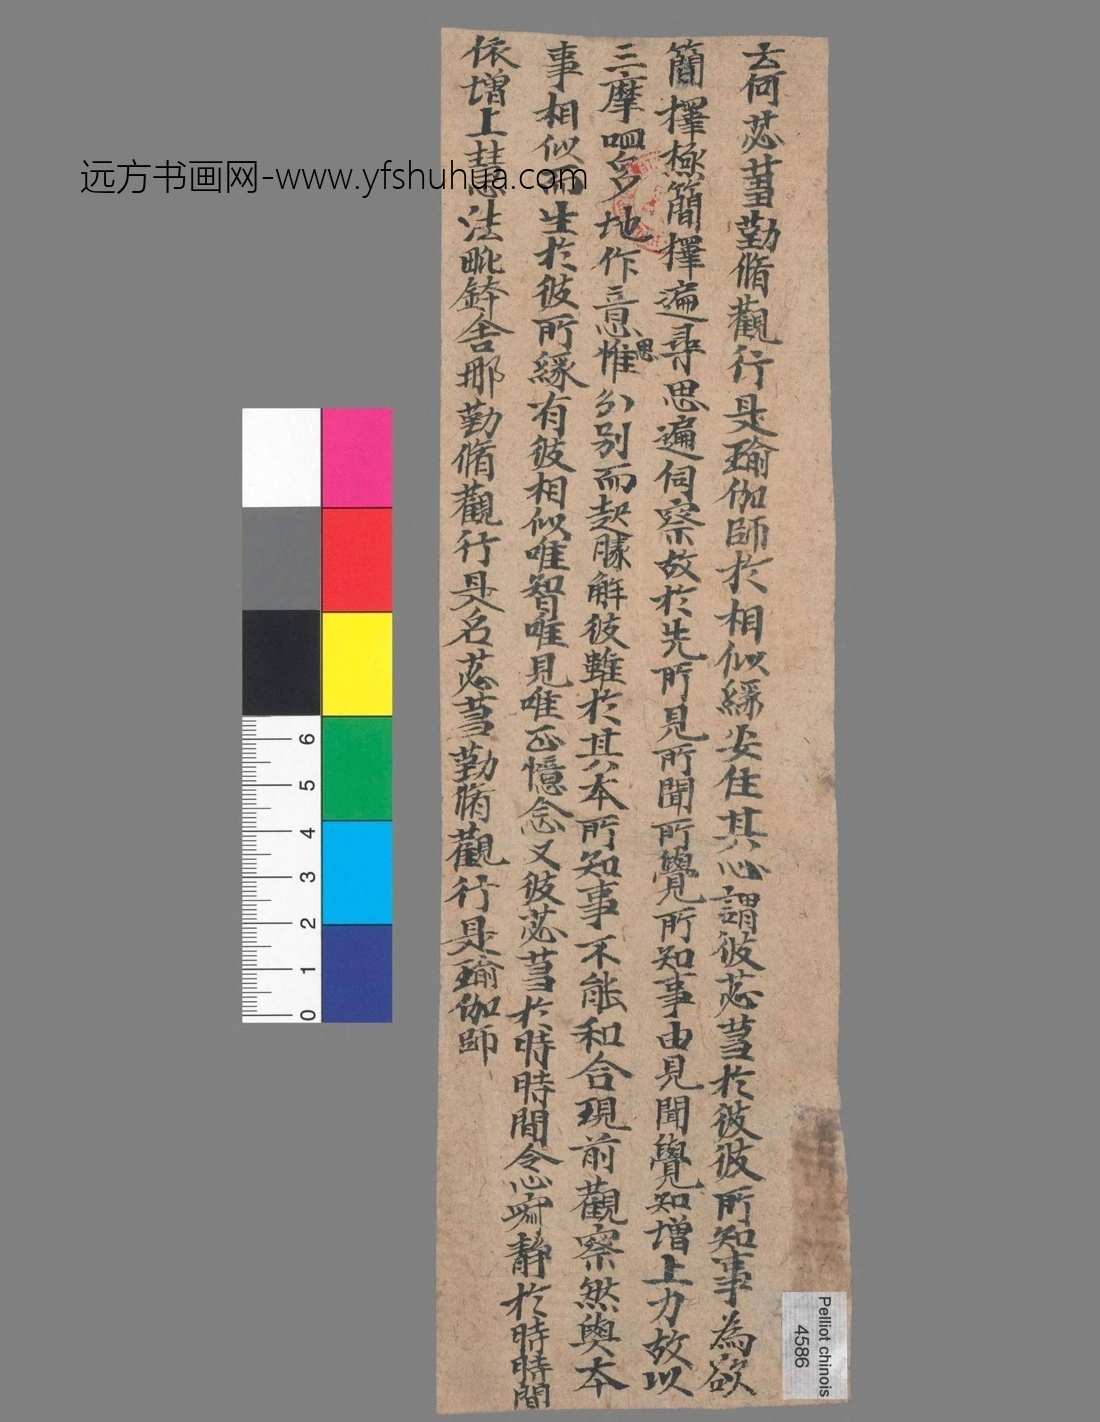 云何苾蒭勤脩觀行是瑜伽師於相似緣安住其心謂彼苾蒭於彼彼所知事為欲
簡擇極簡擇遍尋思遍伺察故於先所見所聞所覺所知事由見聞覺知增上力故以
三摩呬多地作意惟思分别而起勝解彼雖於其本所知事不能和合現前觀察然與本
事相似而生於彼所緣有彼相似唯智唯見唯正憶念又彼苾蒭於時時間令心寂靜於時時間
依增上慧法毗鉢舍那勤脩觀行是名苾蒭勤脩觀行是瑜伽師
远方书画网-www.yfshuhua.com
6
5
4
3
2
1
0
Pelliot chinois
4586